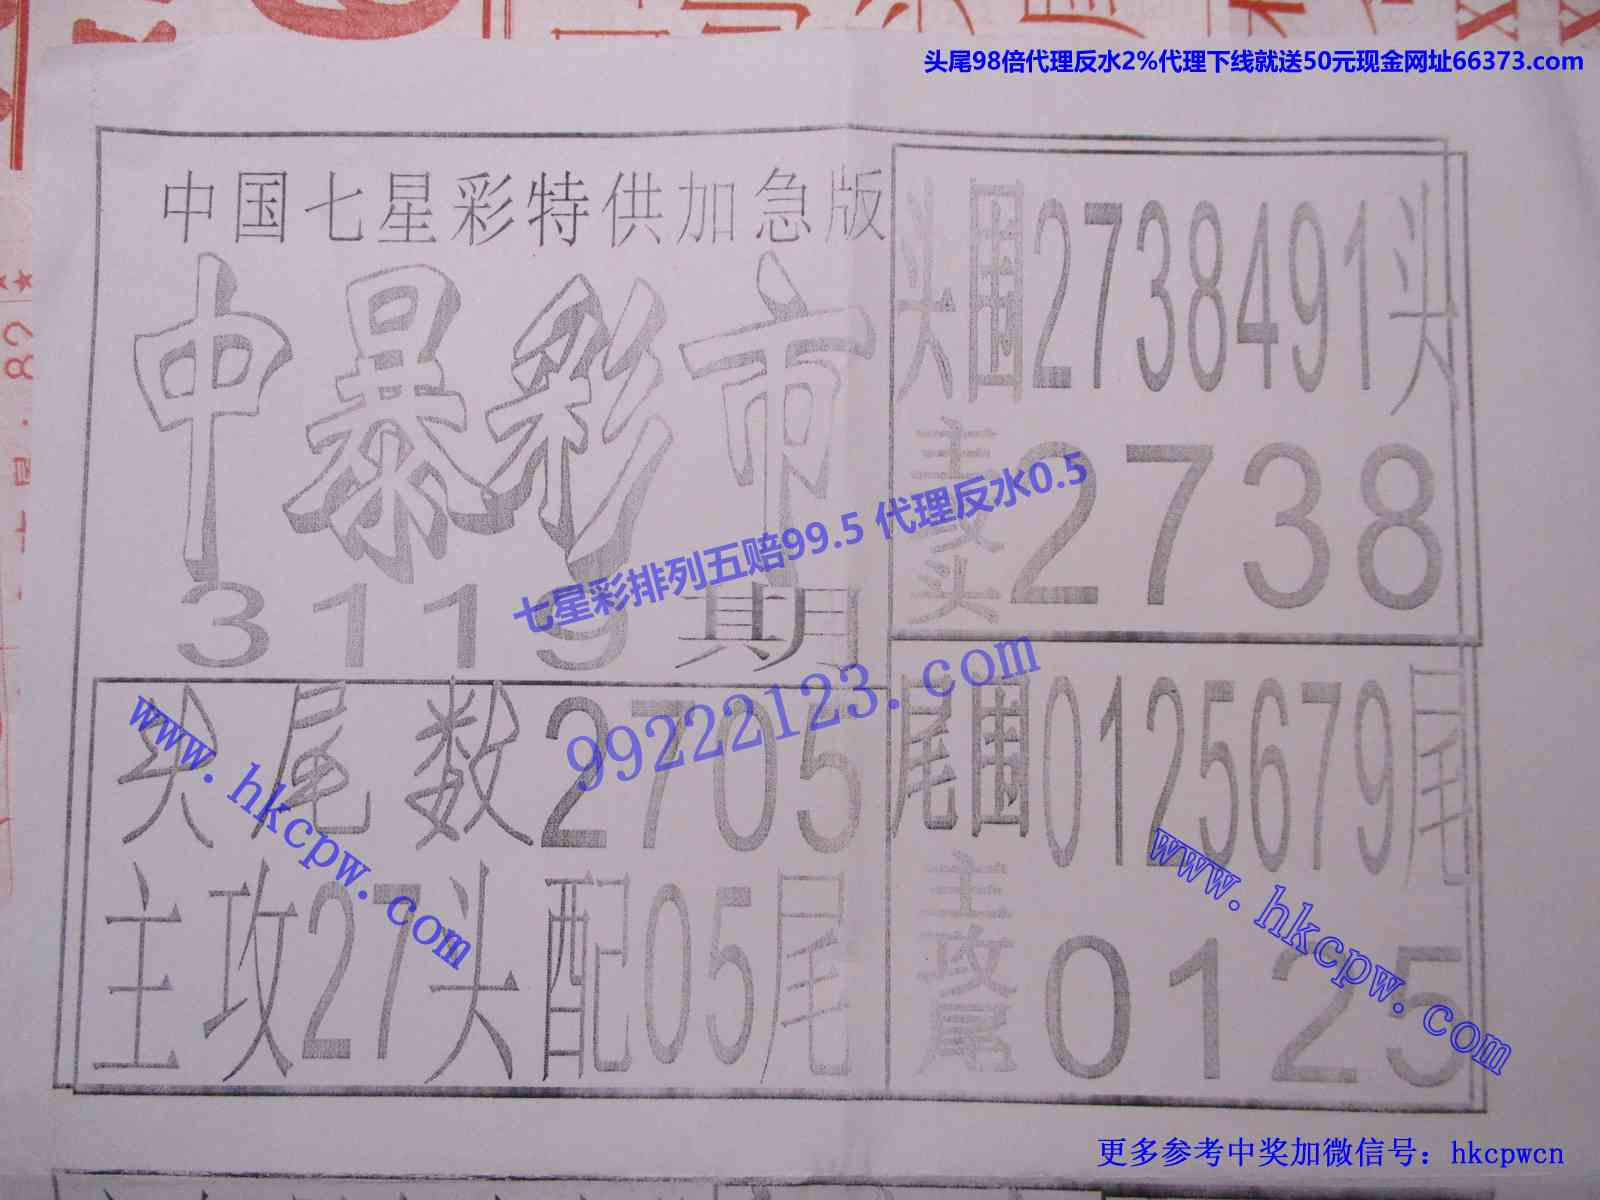 头尾98倍代理反水2%代理下线就送50元现金网址66373.com
中国七星彩特供加急版
中暴彩市
3119期
头围2738491头
主攻头2738
七星彩排列五赔99.5 代理反水0.5
99222123.com
头尾数2705
主攻27头配05尾
尾围0125679尾
主攻尾0125
www.hkcpw.com
www.hkcpw.com
更多参考中奖加微信号：hkcpwcn